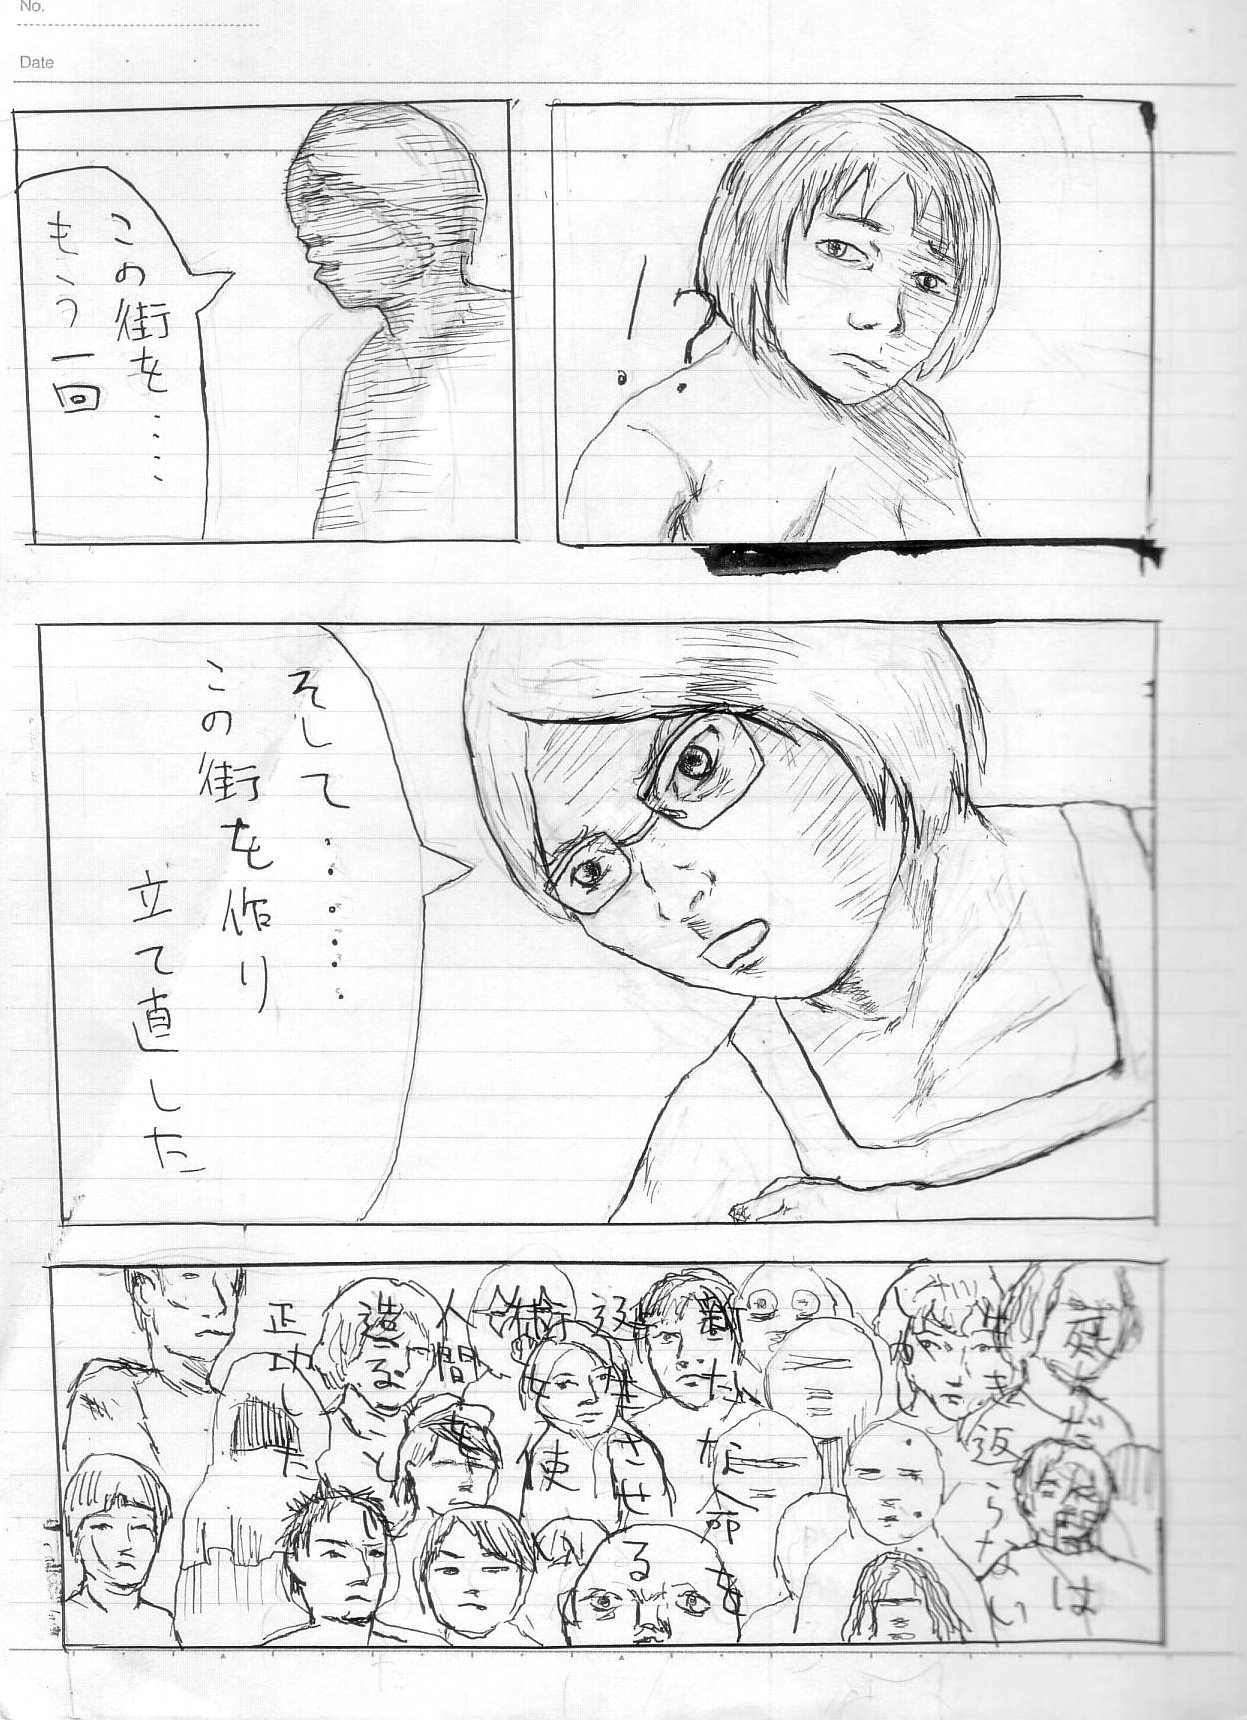 No.
Date
!?
この街を……
もう一回
そして………
この街を作り
立て直した
死んだ人間は
生き返らない
が
新たな命を
誕生させる
技術を使
人間を
造ること
正功した